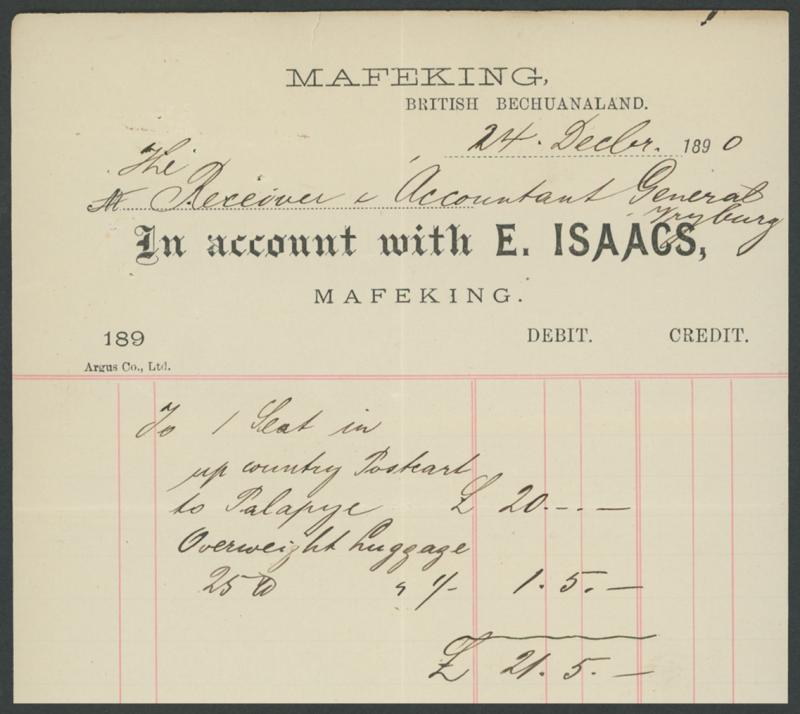 MAFEKING,
BRITISH BECHUANALAND.
24. Decbr. 1890
The
M Receiver & Accountant General
Vryburg
In account with E. ISAACS,
MAFEKING.
189 DEBIT. CREDIT.
Argus Co., Ltd.
To 1 Seat in
up country Postcart
to Palapye £ 20.-.-
Overweight Luggage
25 lb " 1/- 1. 5. -
£ 21. 5. -